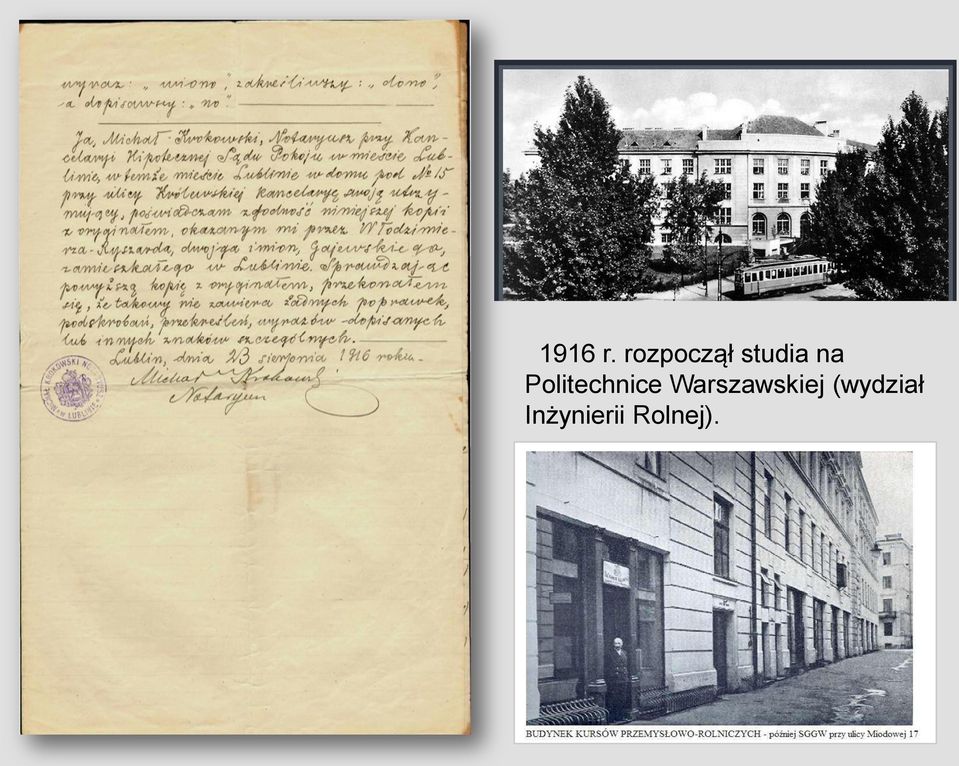 wyraz: „miono", zakreśliwszy: „dono",
-a dopisawszy: „no".
Ja, Michał Krokowski, Notaryusz przy Kan-
celaryi Hipotecznej Sądu Pokoju w mieście Lub-
linie, w temże mieście Lublinie w domu pod № 15
przy ulicy Królewskiej kancelaryę swoją utrzy-
mujący, poświadczam zgodność niniejszej kopii
z oryginałem, okazanym mi przez Włodzimie-
rza-Ryszarda, dwojga imion, Gajewskiego,
zamieszkałego w Lublinie. Sprawdzając
powyższą kopię z oryginałem, przekonałem
się, że takowy nie zawiera żadnych poprawek,
podskrobań, przekreśleń, wyrazów dopisanych
lub innych znaków szczególnych.
Lublin, dnia 23 sierpnia 1916 roku.
Michał Krokowski
Notaryusz
1916 r. rozpoczął studia na
Politechnice Warszawskiej (wydział
Inżynierii Rolnej).
BUDYNEK KURSÓW PRZEMYSŁOWO-ROLNICZYCH - później SGGW przy ulicy Miodowej 17